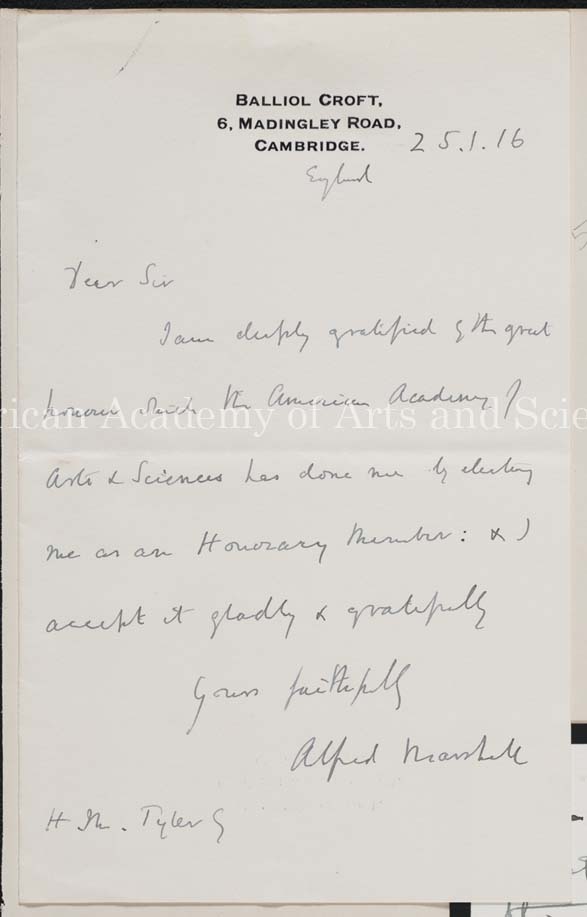 BALLIOL CROFT,
6, MADINGLEY ROAD,
CAMBRIDGE.
25.1.16
England
Dear Sir
I am deeply gratified by the great
honour which the American Academy of
rican Academy of Arts and Scie
Arts & Sciences has done me by electing
me as an Honorary Member: & I
accept it gladly & gratefully
Yours faithfully
Alfred Marshall
H. M. Tyler